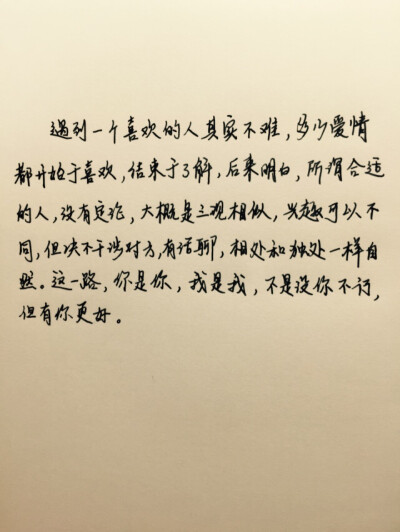 遇到一个喜欢的人其实不难，多少爱情
都开始于喜欢，结束于了解，后来明白，所谓合适
的人，没有定论，大概是三观相似，兴趣可以不
同，但决不干涉对方，有话聊，相处和独处一样自
然。这一路，你是你，我是我，不是没你不行，
但有你更好。